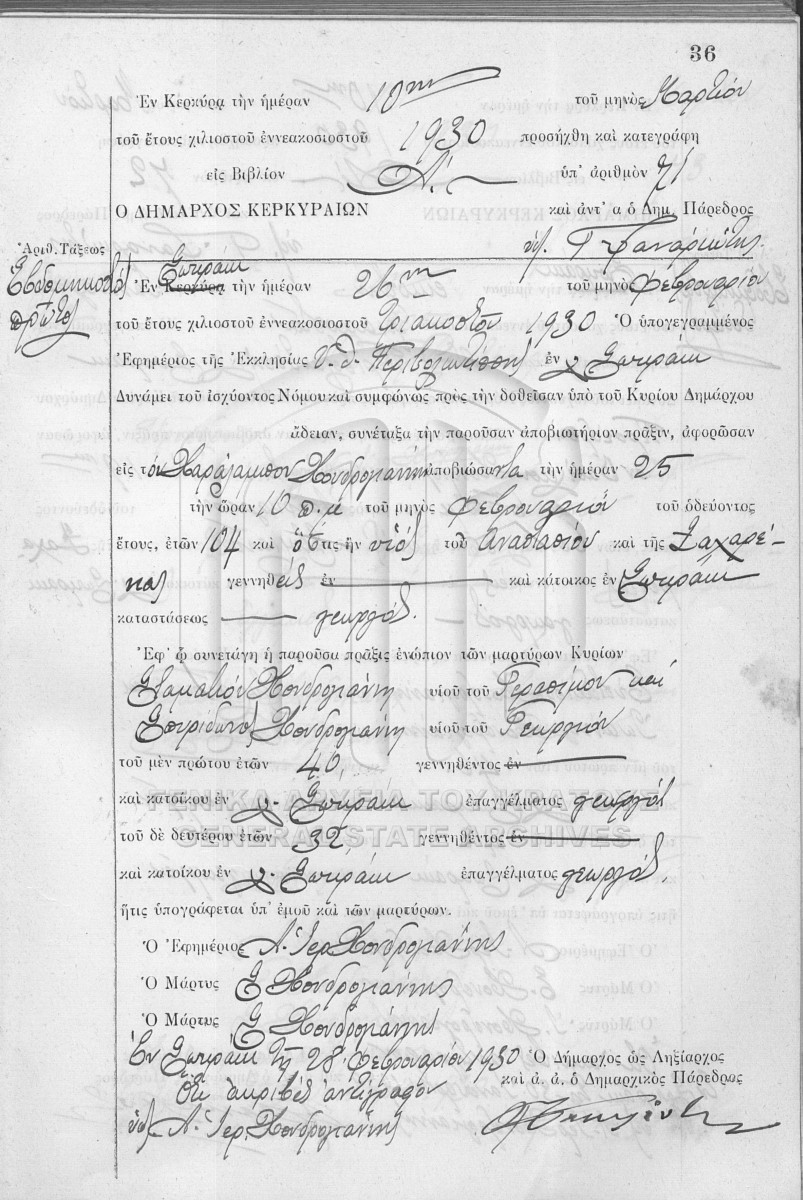 36
Ἐν Κερκύρᾳ τὴν ἡμέραν 10ην τοῦ μηνὸς Μαρτίου
τοῦ ἔτους χιλιοστοῦ ἐννεακοσιοστοῦ 1930 προσήχθη καὶ κατεγράφη
εἰς Βιβλίον Α΄. ὑπ' ἀριθμὸν 71
Ο ΔΗΜΑΡΧΟΣ ΚΕΡΚΥΡΑΙΩΝ καὶ ἀντ' α ὁ Δημ. Πάρεδρος
Ἀριθ. Τάξεως
Ἑβδομηκοστὸς πρῶτος
Σωκράκι
Ἐν Κερκύρᾳ τὴν ἡμέραν 26ην τοῦ μηνὸς Φεβρουαρίου
τοῦ ἔτους χιλιοστοῦ ἐννεακοσιοστοῦ τριακοστοῦ 1930 Ὁ ὑπογεγραμμένος
Ἐφημέριος τῆς Ἐκκλησίας Υ. Θ. ἐν χ. Σωκράκι
Δυνάμει τοῦ ἰσχύοντος Νόμου καὶ συμφώνως πρὸς τὴν δοθεῖσαν ὑπὸ τοῦ Κυρίου Δημάρχου
ἄδειαν, συνέταξα τὴν παροῦσαν ἀποβιωτήριον πρᾶξιν, ἀφορῶσαν
εἰς τὸν Χαράλαμπον Χονδρογιάννην ἀποβιώσαντα τὴν ἡμέραν 25
τὴν ὥραν 10 π.μ τοῦ μηνὸς Φεβρουαρίου τοῦ ὁδεύοντος
ἔτους, ἐτῶν 104 καὶ ὅστις ἦν υἱὸς τοῦ Ἀναστασίου καὶ τῆς Ζαχαρέ-
νας γεννηθεὶς ἐν καὶ κάτοικος ἐν Σωκράκι
καταστάσεως γεωργός.
Ἐφ' ᾧ συνετάγη ἡ παροῦσα πρᾶξις ἐνώπιον τῶν μαρτύρων Κυρίων
Σταματίου Χονδρογιάννη υἱοῦ τοῦ Γερασίμου καὶ
Σπυρίδωνος Χονδρογιάννη υἱοῦ τοῦ Γεωργίου
τοῦ μὲν πρώτου ἐτῶν 40, γεννηθέντος ἐν
καὶ κατοίκου ἐν χ. Σωκράκι ἐπαγγέλματος γεωργός
ΓΕΝΙΚΑ ΑΡΧΕΙΑ ΤΟΥ ΚΡΑΤΟΥΣ
τοῦ δὲ δευτέρου ἐτῶν 32, γεννηθέντος ἐν
GENERAL STATE ARCHIVES
καὶ κατοίκου ἐν χ. Σωκράκι ἐπαγγέλματος γεωργός,
ἥτις ὑπογράφεται ὑπ' ἐμοῦ καὶ τῶν μαρτύρων.
Ὁ Ἐφημέριος Α. Ἱερ. Χονδρογιάννης
Ὁ Μάρτυς Σ Χονδρογιάννης
Ὁ Μάρτυς Σ Χονδρογιάννης
Ἐν Σωκράκι τῇ 28 Φεβρουαρίου 1930 Ὁ Δήμαρχος ὡς Ληξίαρχος
Ὅτι ἀκριβὲς ἀντίγραφον καὶ ἀ. ἀ. ὁ Δημαρχικὸς Πάρεδρος
Α. Ἱερ. Χονδρογιάννης